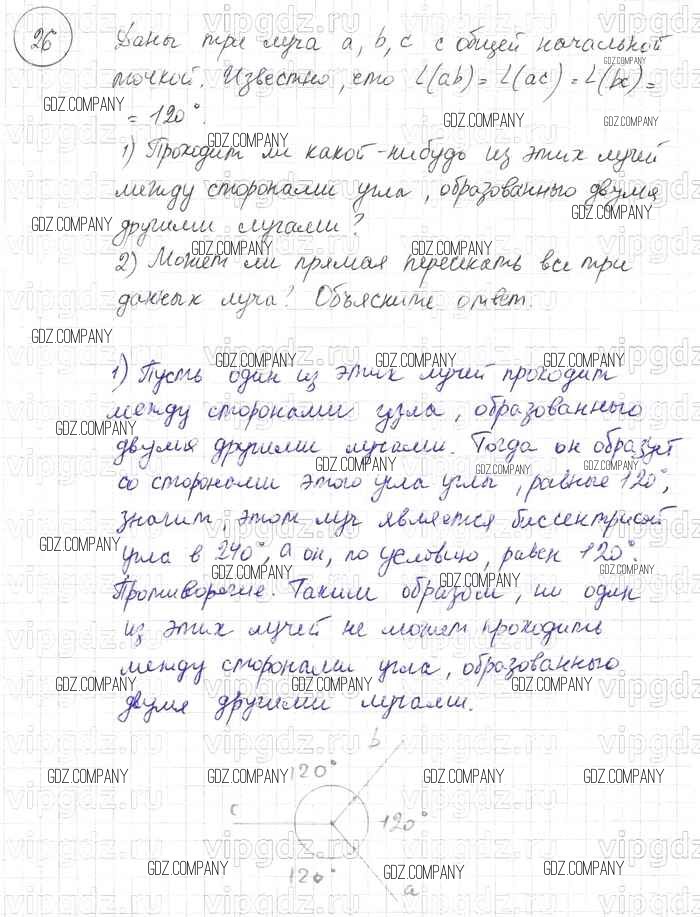 26
Даны три луча a, b, c с общей начальной
точкой. Известно, что ∠(ab) = ∠(ac) = ∠(bc) =
= 120°.
1) Проходит ли какой-нибудь из этих лучей
между сторонами угла, образованного двумя
другими лучами?
2) Может ли прямая пересекать все три
данных луча? Объясните ответ.
1) Пусть один из этих лучей проходит
между сторонами узла, образованного
двумя другими лучами. Тогда он образует
со сторонами этого угла углы, равные 120°,
значит, этот луч является биссектрисой
угла в 240°, а он, по условию, равен 120°.
Противоречие. Таким образом, ни один
из этих лучей не может проходить
между сторонами угла, образованного
двумя другими лучами.
b
120°
c
120°
120°
a
GDZ.COMPANY
vipgdz.ru